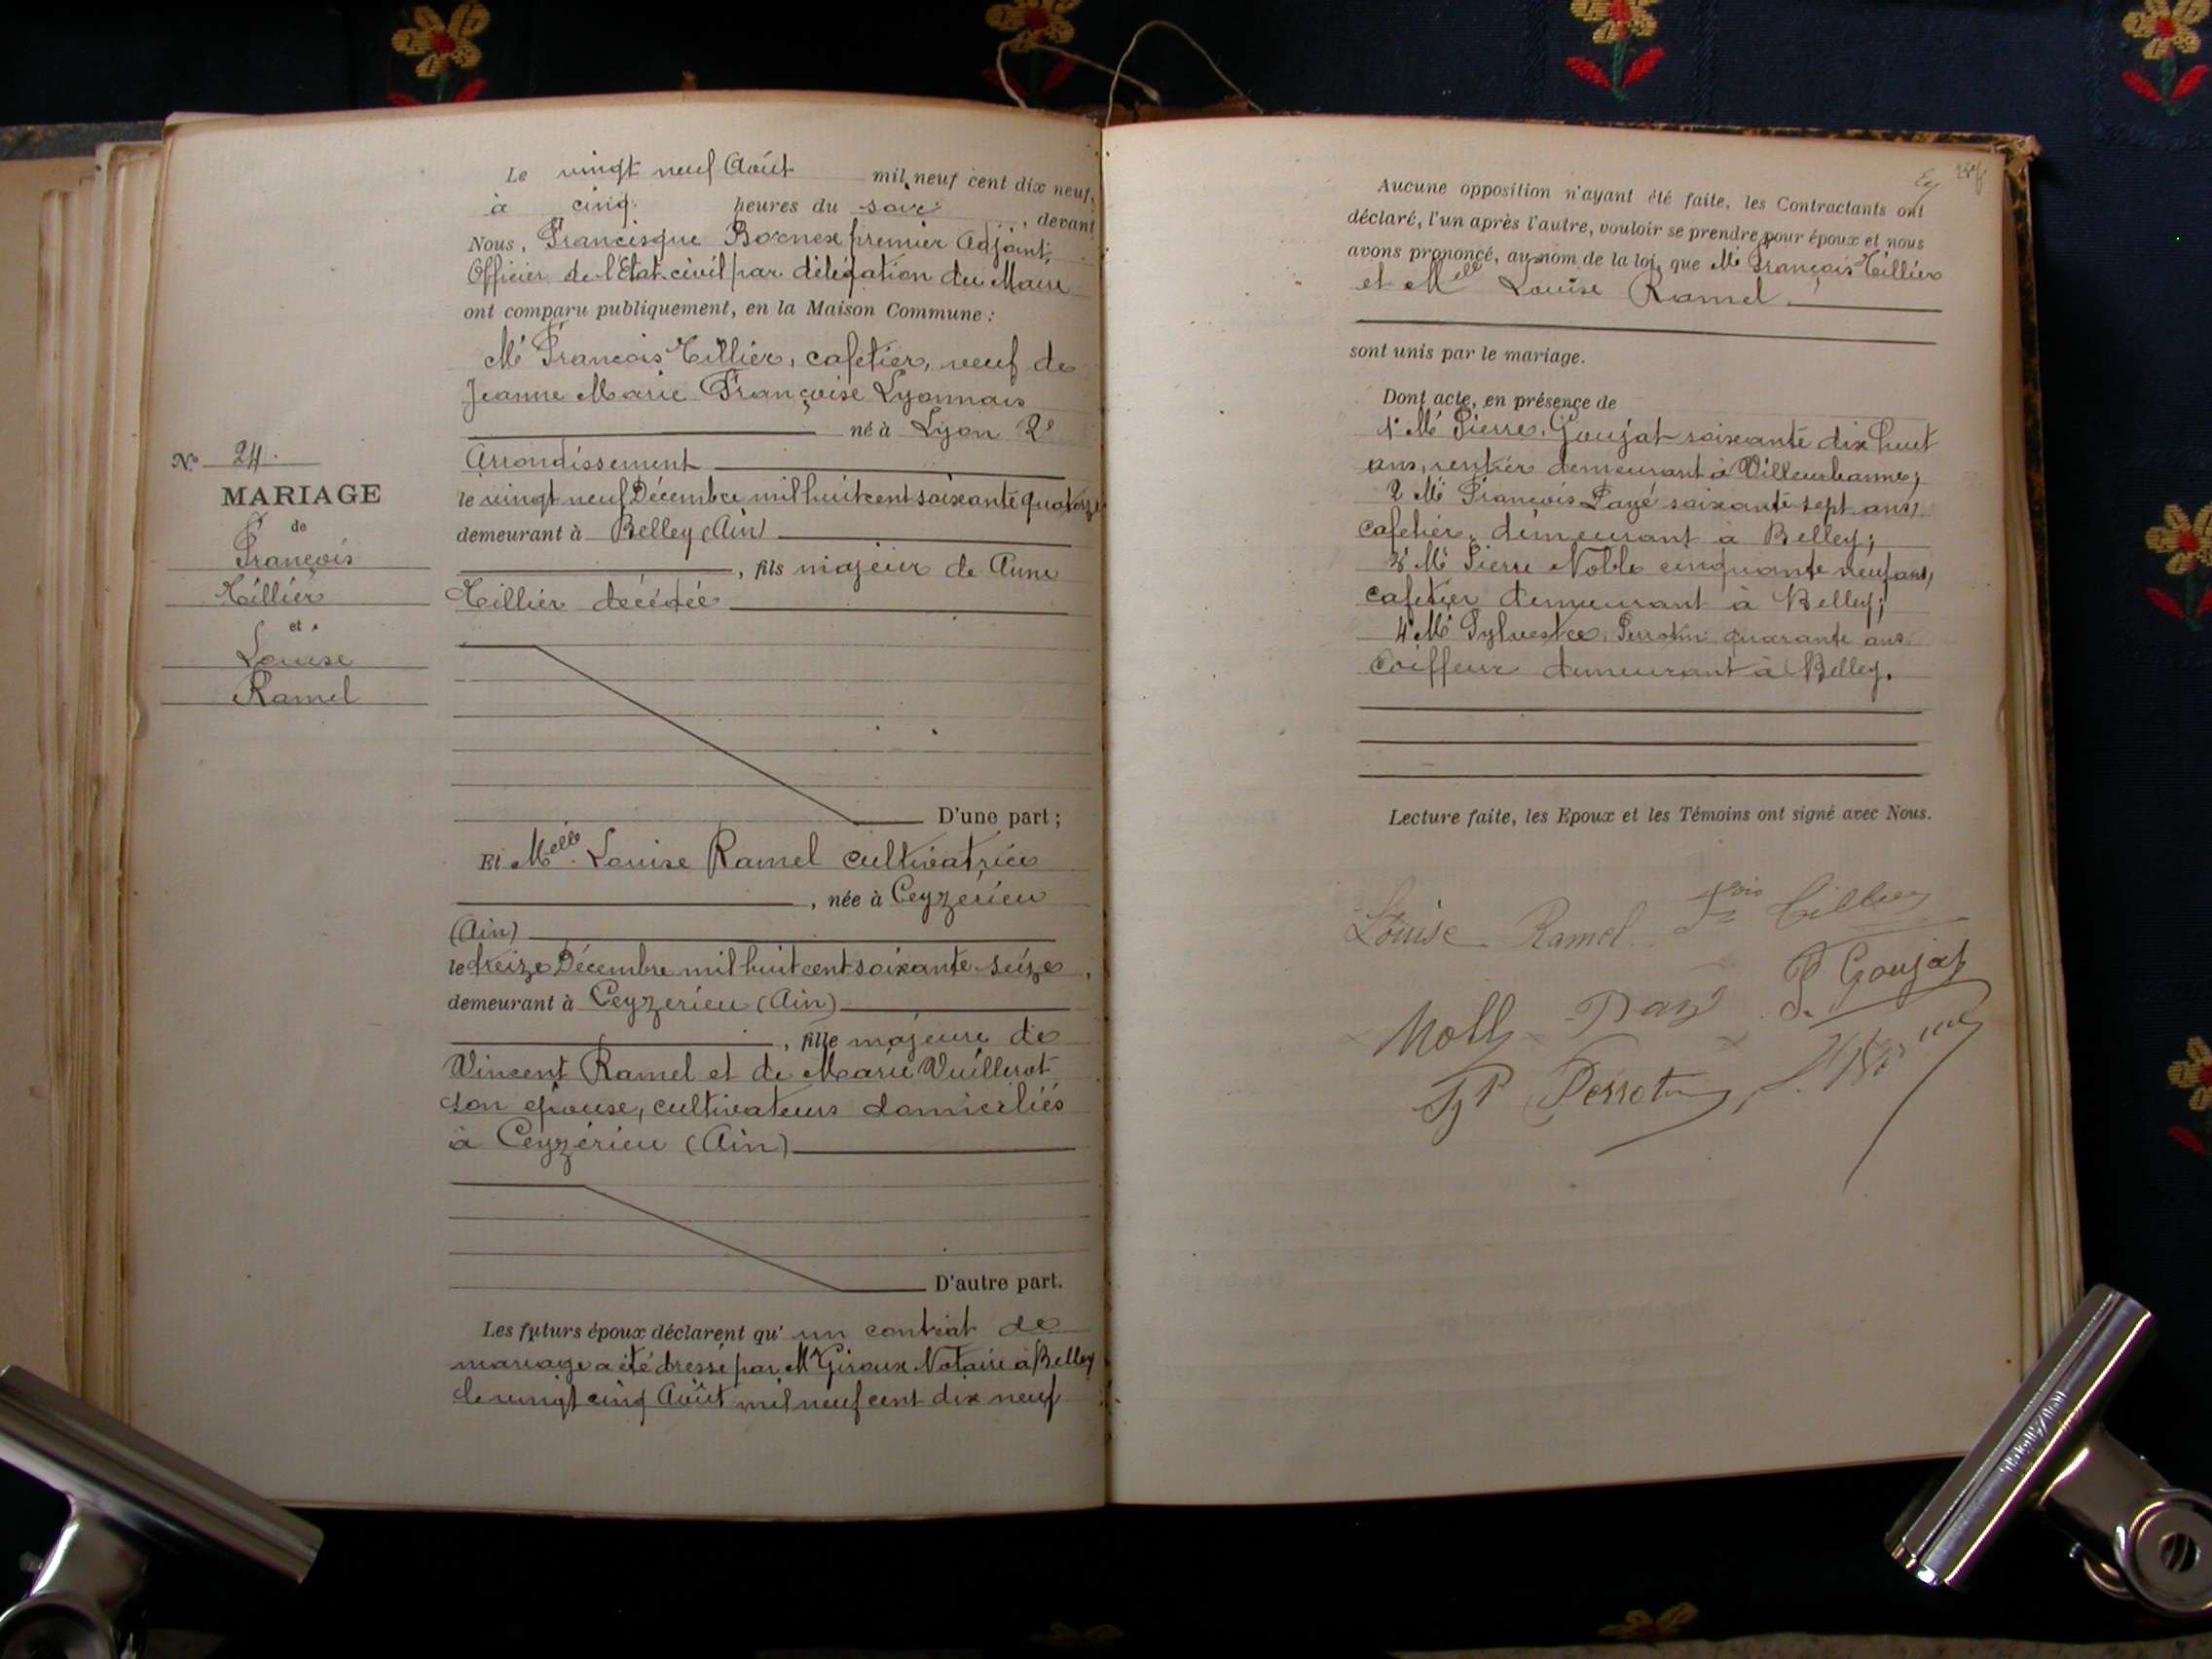 Le vingt neuf Août mil neuf cent dix neuf,
à cinq heures du soir, devant
Nous, Francisque Bornex premier Adjoint,
Officier de l'Etat-civil par délégation du Maire
ont comparu publiquement, en la Maison Commune :
Mr François Tillier, cafetier, veuf de
Jeanne Marie Françoise Lyonnais
né à Lyon 2e
Arrondissement
le vingt neuf Décembre mil huit cent soixante quatorze
demeurant à Belley (Ain)
, fils majeur de Anne
Tillier décédée
D'une part ;
Et Melle Louise Ramel cultivatrice
, née à Ceyzérieu
(Ain)
le treize Décembre mil huit cent soixante-seize,
demeurant à Ceyzerieu (Ain)
, fille majeure de
Vincent Ramel et de Marie Vuillerot
son épouse, cultivateurs domiciliés
à Ceyzérieu (Ain)
D'autre part.
Les futurs époux déclarent qu' un contrat de
mariage a été dressé par Me Giroux Notaire à Belley
le vingt cinq Août mil neuf cent dix neuf
No 24.
MARIAGE
de
François
Tillier
et
Louise
Ramel
Aucune opposition n'ayant été faite, les Contractants ont
déclaré, l'un après l'autre, vouloir se prendre pour époux et nous
avons prononcé, au nom de la loi, que Mr François Tillier
et Melle Louise Ramel
sont unis par le mariage.
Dont acte, en présence de
1° Mr Pierre Goujat soixante dix huit
ans, rentier demeurant à Villeurbanne;
2 Mr François Payé soixante-sept ans,
cafetier, demeurant à Belley;
3° Mr Pierre Noble cinquante neuf ans,
cafetier demeurant à Belley;
4° Mr Sylvestre Perrotin quarante ans
coiffeur demeurant à Belley.
Lecture faite, les Epoux et les Témoins ont signé avec Nous.
Louise Ramel Fois Tillier
P. Goujat
Payé
Perrotin